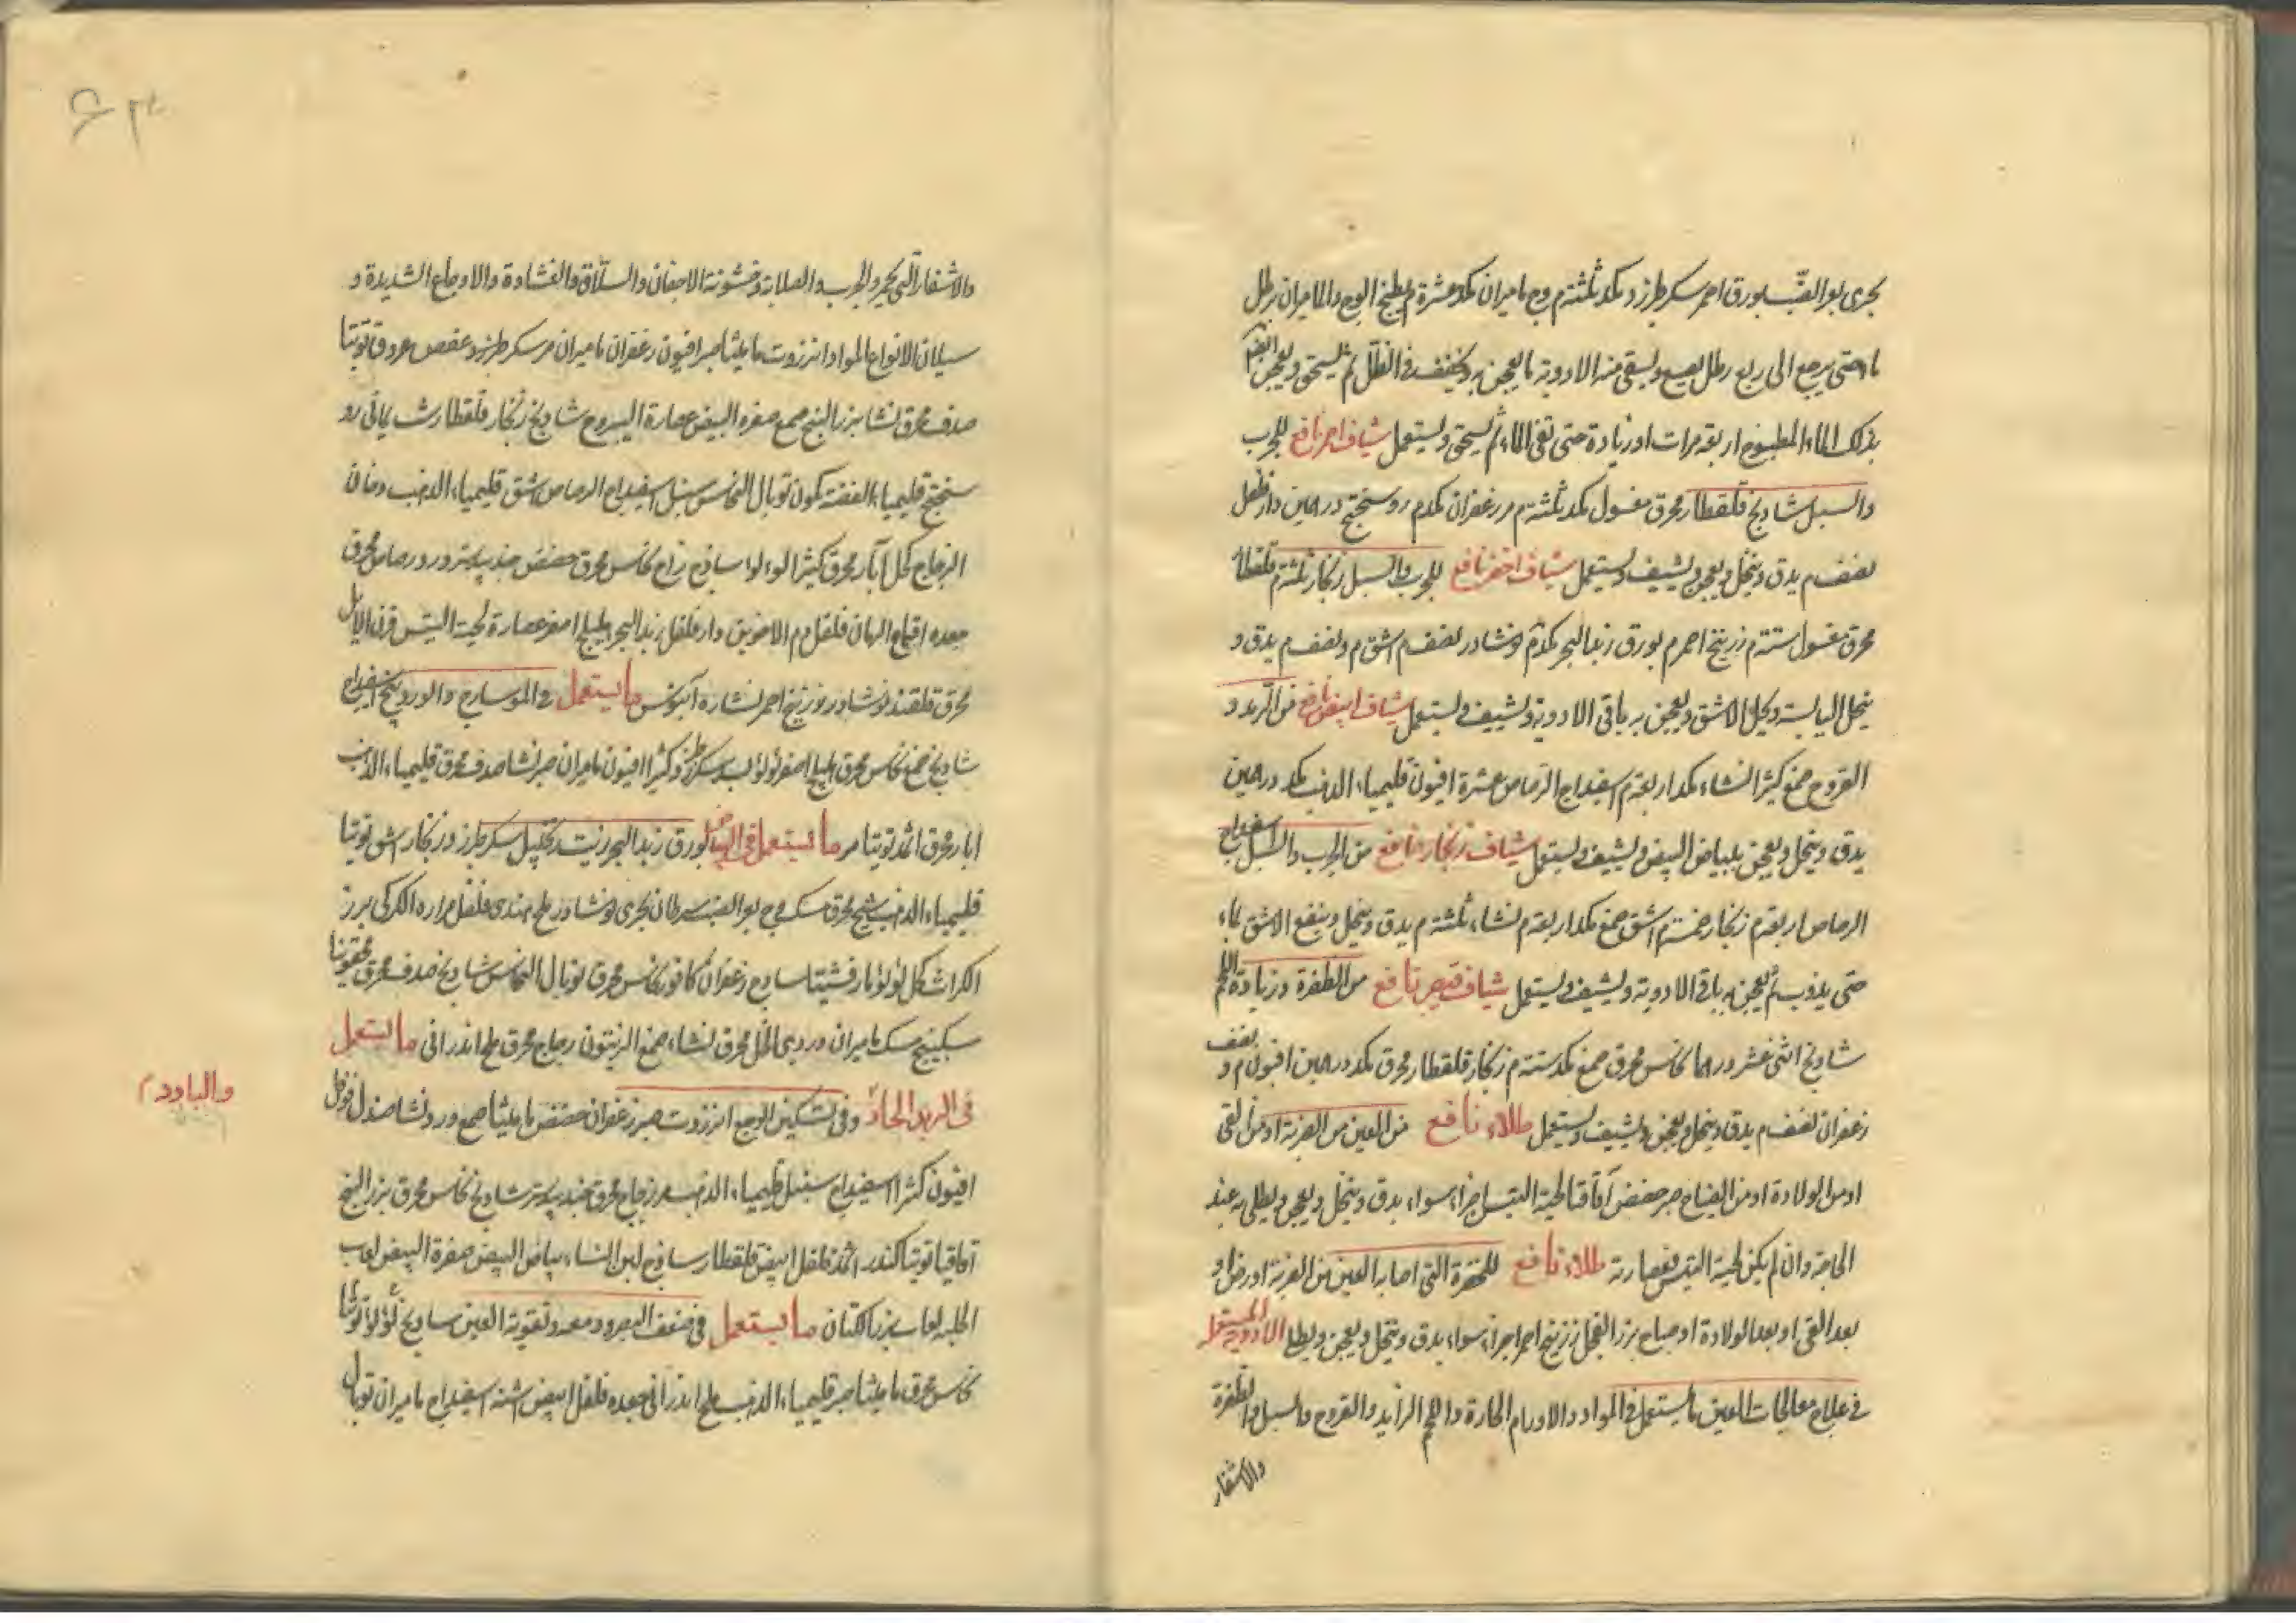 بحرى بعر الضب بورق احمر سكر طبرزد مكد ثلثة م وج ماميران مكد عشرة م يطبخ الوج والماميران برطل
ماء حتى يرجع الى ربع رطل يصفى ويسقى منه الادوية ما يعجن به ويجفف فى الظل ثم يسحق ويعجن ايضا
بذلك الماء المطبوخ اربعة مرات او زيادة حتى تفى الماء ثم يسحق ويستعمل شياف احمر نافع للجرب
والسبل شادنج قلقطار محرق مغسول مكد ثلثة م مر زعفران مكد م روسختج درهمين دار فلفل
نصف م يدق وينخل ويعجن ويشيف ويستعمل شياف اخضر نافع للجرب والسبل زنجار ثلثة م قلقطار
محرق مغسول ستة م زرنيخ احمر م بورق زبد البحر مكد م نوشادر نصف م اشق م ونصف م يدق و
ينخل اليابسة ويحل الاشق ويعجن به باقى الادوية ويشيف ويستعمل شياف ابيض نافع من الرمد و
القروح صمغ كثيرا نشاء مكد اربعة م اسفيداج الرصاص عشرة افيون قليمياء الذهب مكد درهمين
يدق وينخل ويعجن ببياض البيض ويشيف ويستعمل شياف زنجار نافع من الجرب والسبل اسفيداج
الرصاص اربعة م زنجار خمسة م اشق صمغ مكد اربعة م نشاء ثلثة م يدق وينخل وينقع الاشق بماء
حتى يذوب ثم يعجن به باقى الادوية ويشيف ويستعمل شياف قيصر نافع من الظفرة وزيادة اللحم
شادنج اثنى عشر درهما نحاس محرق صمغ مكد ستة م زنجار قلقطار محرق مكد درهمين افيون م و نصف
زعفران نصف م يدق وينخل ويعجن ويشيف ويستعمل طلاء نافع من العين من الضربة او من القى
او من الولادة او من الصياح صبر حضض اقاقيا لحية التيس اجزاء سواء يدق وينخل ويعجن ويطلى به عند
الحاجة وان لم يكن لحية التيس فعصارته طلاء نافع للحمرة التى اصابه العين من الضربة او رض او
بعد القى او بعد الولادة او صياح بزر الفجل زرنيخ احمر اجزاء سواء يدق وينخل ويعجن ويطلا الادوية المستعملة
فى علاج معالجات العين ما يستعمل فى المواد والاورام الحارة واللحم الزايد والقروح والسبل والظفرة
والاشفار
والاشفار التى تحمر والجرب والصلابة وخشونة الاجفان والسلاق والغشاوة والاوجاع الشديدة و
سيلان الانواع المواد انزروت ماميثا صبر افيون زعفران ماميران مر سكر طبرزد عفص عروق توتيا
صدف محرق نشا بزر البنج صمغ صفره البيض عصارة اليبروح شادنج زنجار قلقطار شب يمانى رو
سختج قليمياء الفضة كمون توبال النحاس سنبل اسفيداج الرصاص اشق قليمياء الذهب دخان
الزجاج كحل آبار محرق كثيرا لولو ساذج زاج نحاس محرق حضض جندبيدستر ورد رصاص محرق
جعده اقماع الرمان فلفل دم الاخوين دار فلفل زبد البحر هليلج اصفر عصارة لحية التيس قرن الايل
محرق قلقند نوشادر زرنيخ احمر نشاره آبنوس ما يستعمل فى الموسارج والوردينج اسفيداج
شادنج صمغ نحاس محرق هليلج اصفر لولو بسد سكر طبرزد كثيرا افيون ماميران صبر نشا صدف محرق قليمياء الذهب
ابار محرق اثمد توتيا مر ما يستعمل فى البياض بورق زبد البحر زنجبيل سكر طبرزد زنجار اشق توتيا
قليمياء الذهب شيح محرق مسك وج بعر الضب سرطان بحرى نوشادر ملح هندى فلفل مراره الكركى بزر
الكراث كحل لولو مارقشيثا ساذج زعفران كافور نحاس محرق توبال النحاس شادنج صدف محرق سقمونيا
سكبينج مسك ماميران دردى الخل محرق نشاء صمغ الزيتون زجاج محرق ملح اندرانى ما يستعمل
فى الرمد الحاد وفى تسكين الوجع انزروت صبر زعفران حضض ماميثا صمغ ورد نشا صندل فوفل
والبارد م
افيون كثيرا اسفيداج سنبل قليمياء الذهب مر زجاج محرق جندبيدستر شادنج نحاس محرق بزر البنج
اقاقيا توتيا كندر اثمد فلفل ابيض قلقطار ساذج لبن النساء بياض البيض صفرة البيض لعاب
الحلبه لعاب بزر الكتان ما يستعمل فى ضعف البصر ودمعه وتقوية العين ساذج لؤلؤ توتيا
نحاس محرق ماميثا صبر قليمياء الذهب ملح اندرانى جعده فلفل ابيض اشنه اسفيداج ماميران توبال